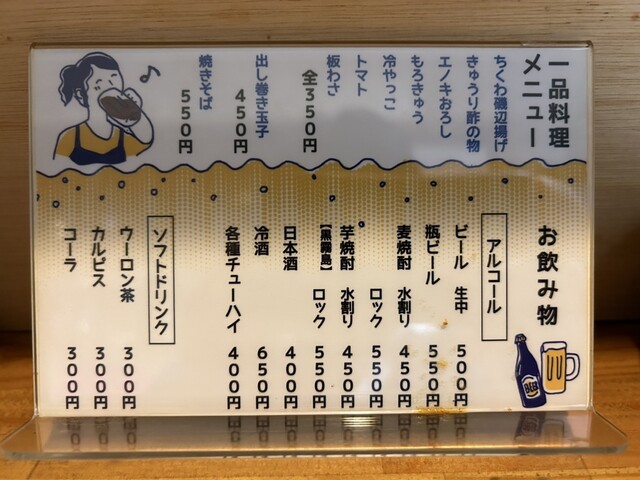 一品料理
メニュー
ちくわ磯辺揚げ
きゅうり酢の物
エノキおろし
もろきゅう
冷やっこ
トマト
板わさ
全350円
出し巻き玉子
450円
焼きそば
550円
お飲み物
アルコール
ビール 生中 500円
瓶ビール 550円
麦焼酎 水割り 450円
ロック 550円
芋焼酎 水割り 450円
【黒霧島】 ロック 550円
日本酒 400円
冷酒 650円
各種チューハイ 400円
ソフトドリンク
ウーロン茶 300円
カルピス 300円
コーラ 300円
BEER